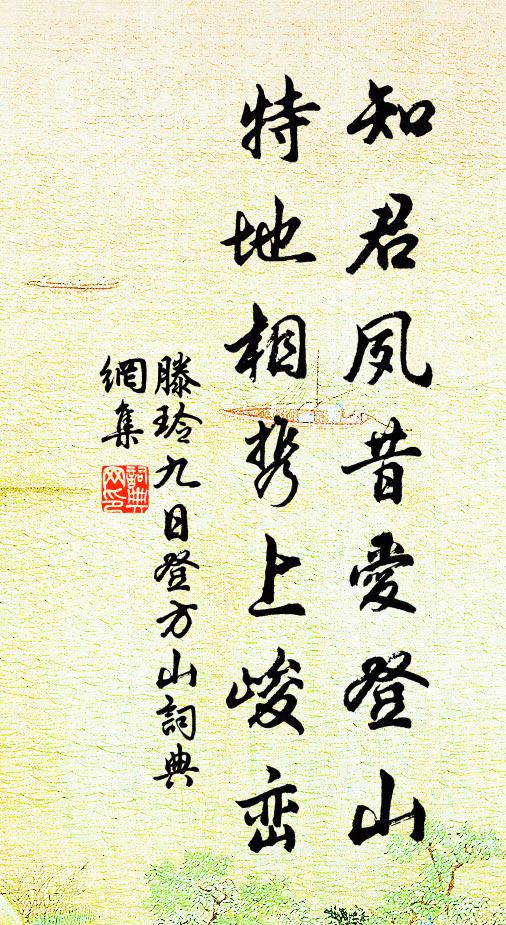 知君夙昔爱登山
特地相携上峻峦
滕玲九日登方山詞典
網集
詞典網印